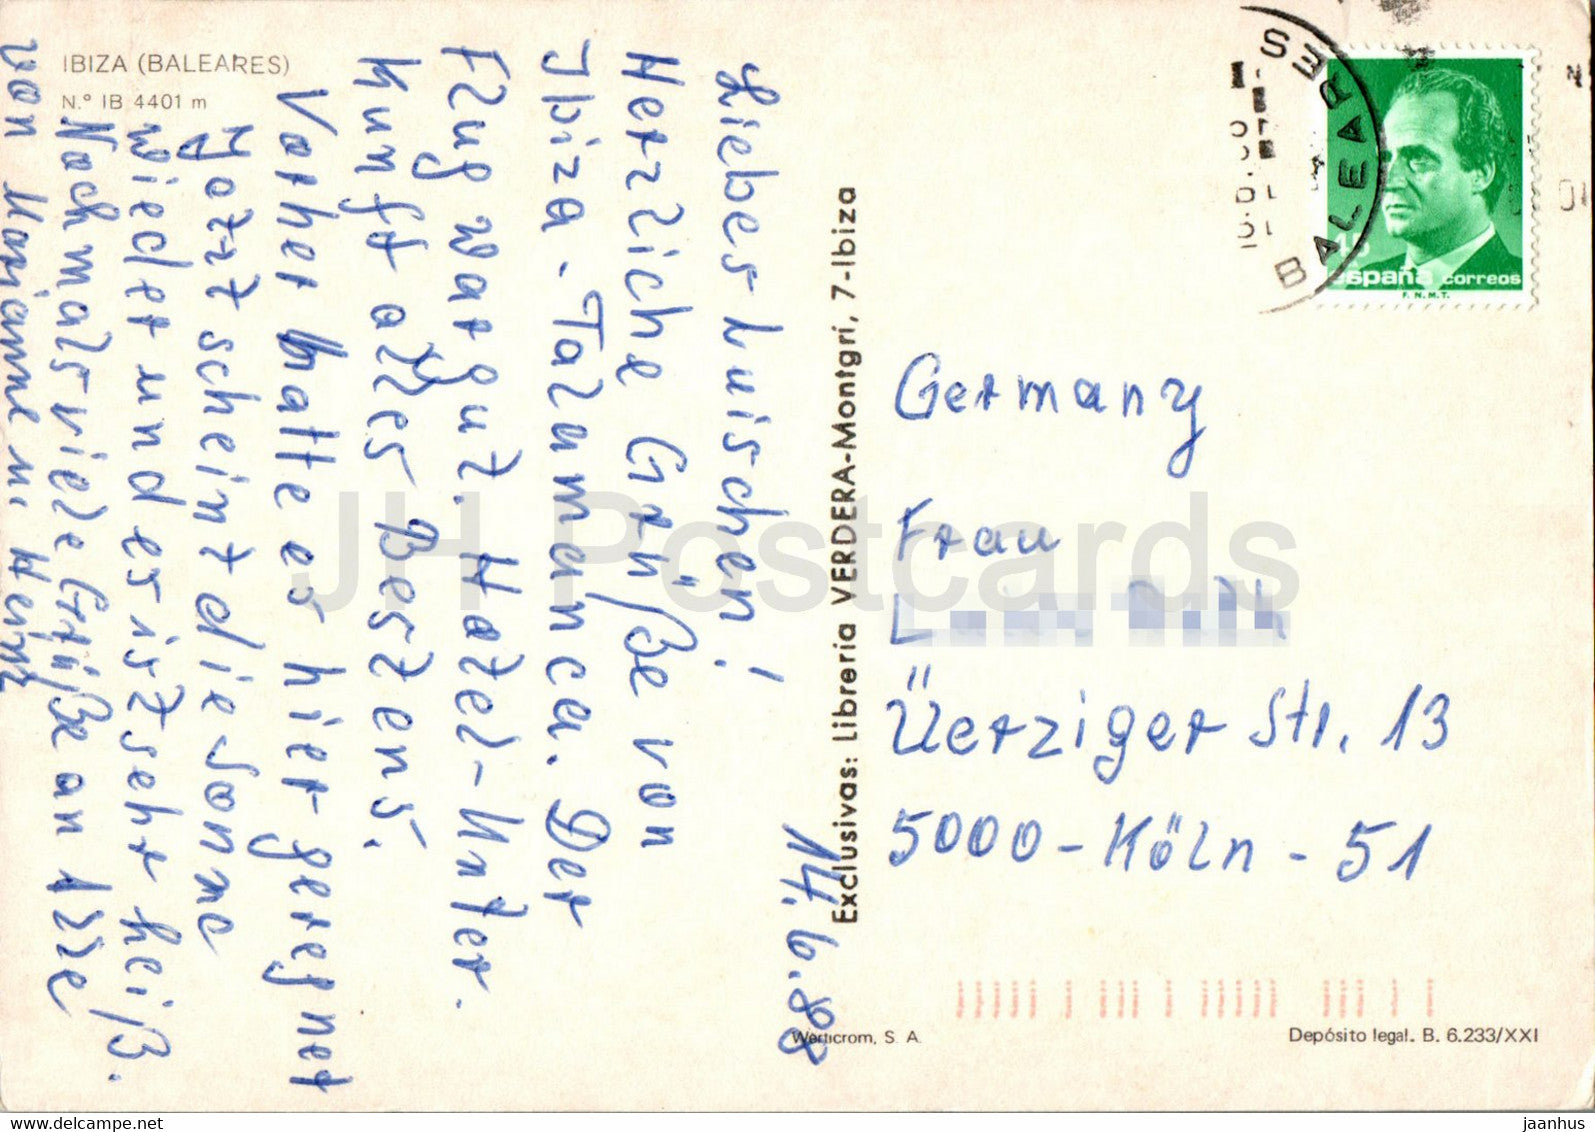 IBIZA (BALEARES)
N.° IB 4401 m
14.6.88
Liebes Luischen!
Herzliche Grüße von
Ibiza - Talamanca. Der
Flug war gut. Hotel-Unter.
kunft alles Bestens.
Vorher hatte es hier geregnet
Jetzt scheint die Sonne
wieder und es ist sehr heiß.
Nochmals viele Grüße an alle
von Marianne u. Heinz
Exclusivas: Libreria VERDERA-Montgrí, 7-Ibiza
BALEARES
15
españa correos
F.N.M.T.
Germany
Frau
Üerziger Str. 13
5000 - Köln - 51
Werticrom, S. A.
Depósito legal. B. 6.233/XXI
JH Postcards
www.delcampe.net
jaanhus